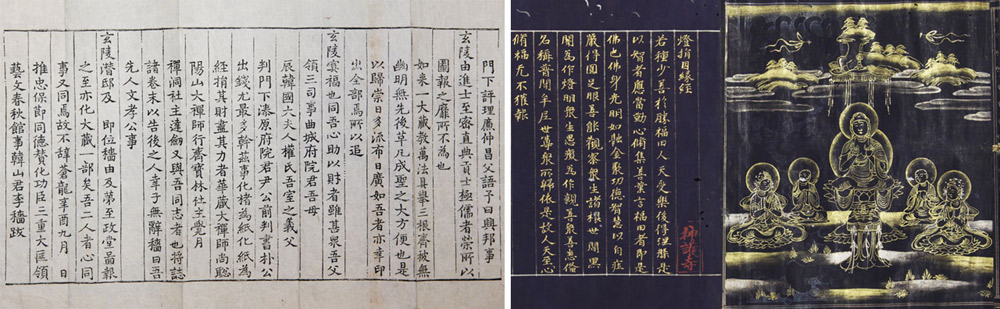 門下評理廉仲昌父語予曰興邦事
玄陵由進士至密直典貢士極儒者榮所以
圖報之靡所不爲也
如來一大藏敎萬法具擧三根齊被無
幽明無先後革凡成聖之大方便也是
以歸崇日多流布日廣如吾者亦事印
出全部焉所以追
玄陵冥福也同吾心助以財者雖甚衆吾父
領三司事曲城府院君吾母
辰韓國大夫人權氏吾室之義父
判門下漆原府院君尹公前判書朴公
出錢尤最多幹茲事化楮爲紙化紙爲
經捐其財盡其力者華藏大禪師尙聡
陽山大禪師行齊寶林社主覺月
禪洞社主達劒又與吾同志者也將誌
諸卷末以告後之人幸子無辭穡曰吾
先人文孝公事
玄陵潛邸及 即位穡由及第至政堂啚報
之至亦化大藏一部矣吾二人者心同
事又同焉故不辭蒼龍辛酉九月 日
推忠保節同德賛化功臣三重大匡領
藝文春秋館事韓山君李穡跋
燈指因緣經
若種少善於勝福田人天受樂後得涅槃是
以智者應當勤心修集善業言福田者即是
佛也佛身光明如融金聚功德智慧以自莊
嚴得圓足眼善能觀察衆生諸根世間黑
闇爲作燈明衆生愚癡爲作親善衆善悉備
名稱普聞牟尼世尊衆所歸依是故人天至心
修福无不獲報
神護寺